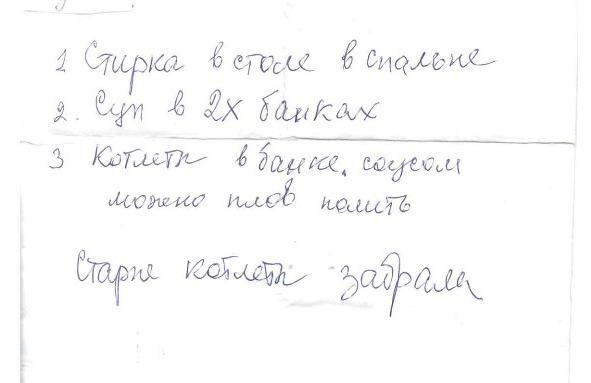 1 Стирка в столе в спальне
2. Суп в 2х банках
3 Котлеты в банке. соусом
можно плов полить
Старые котлеты забрала